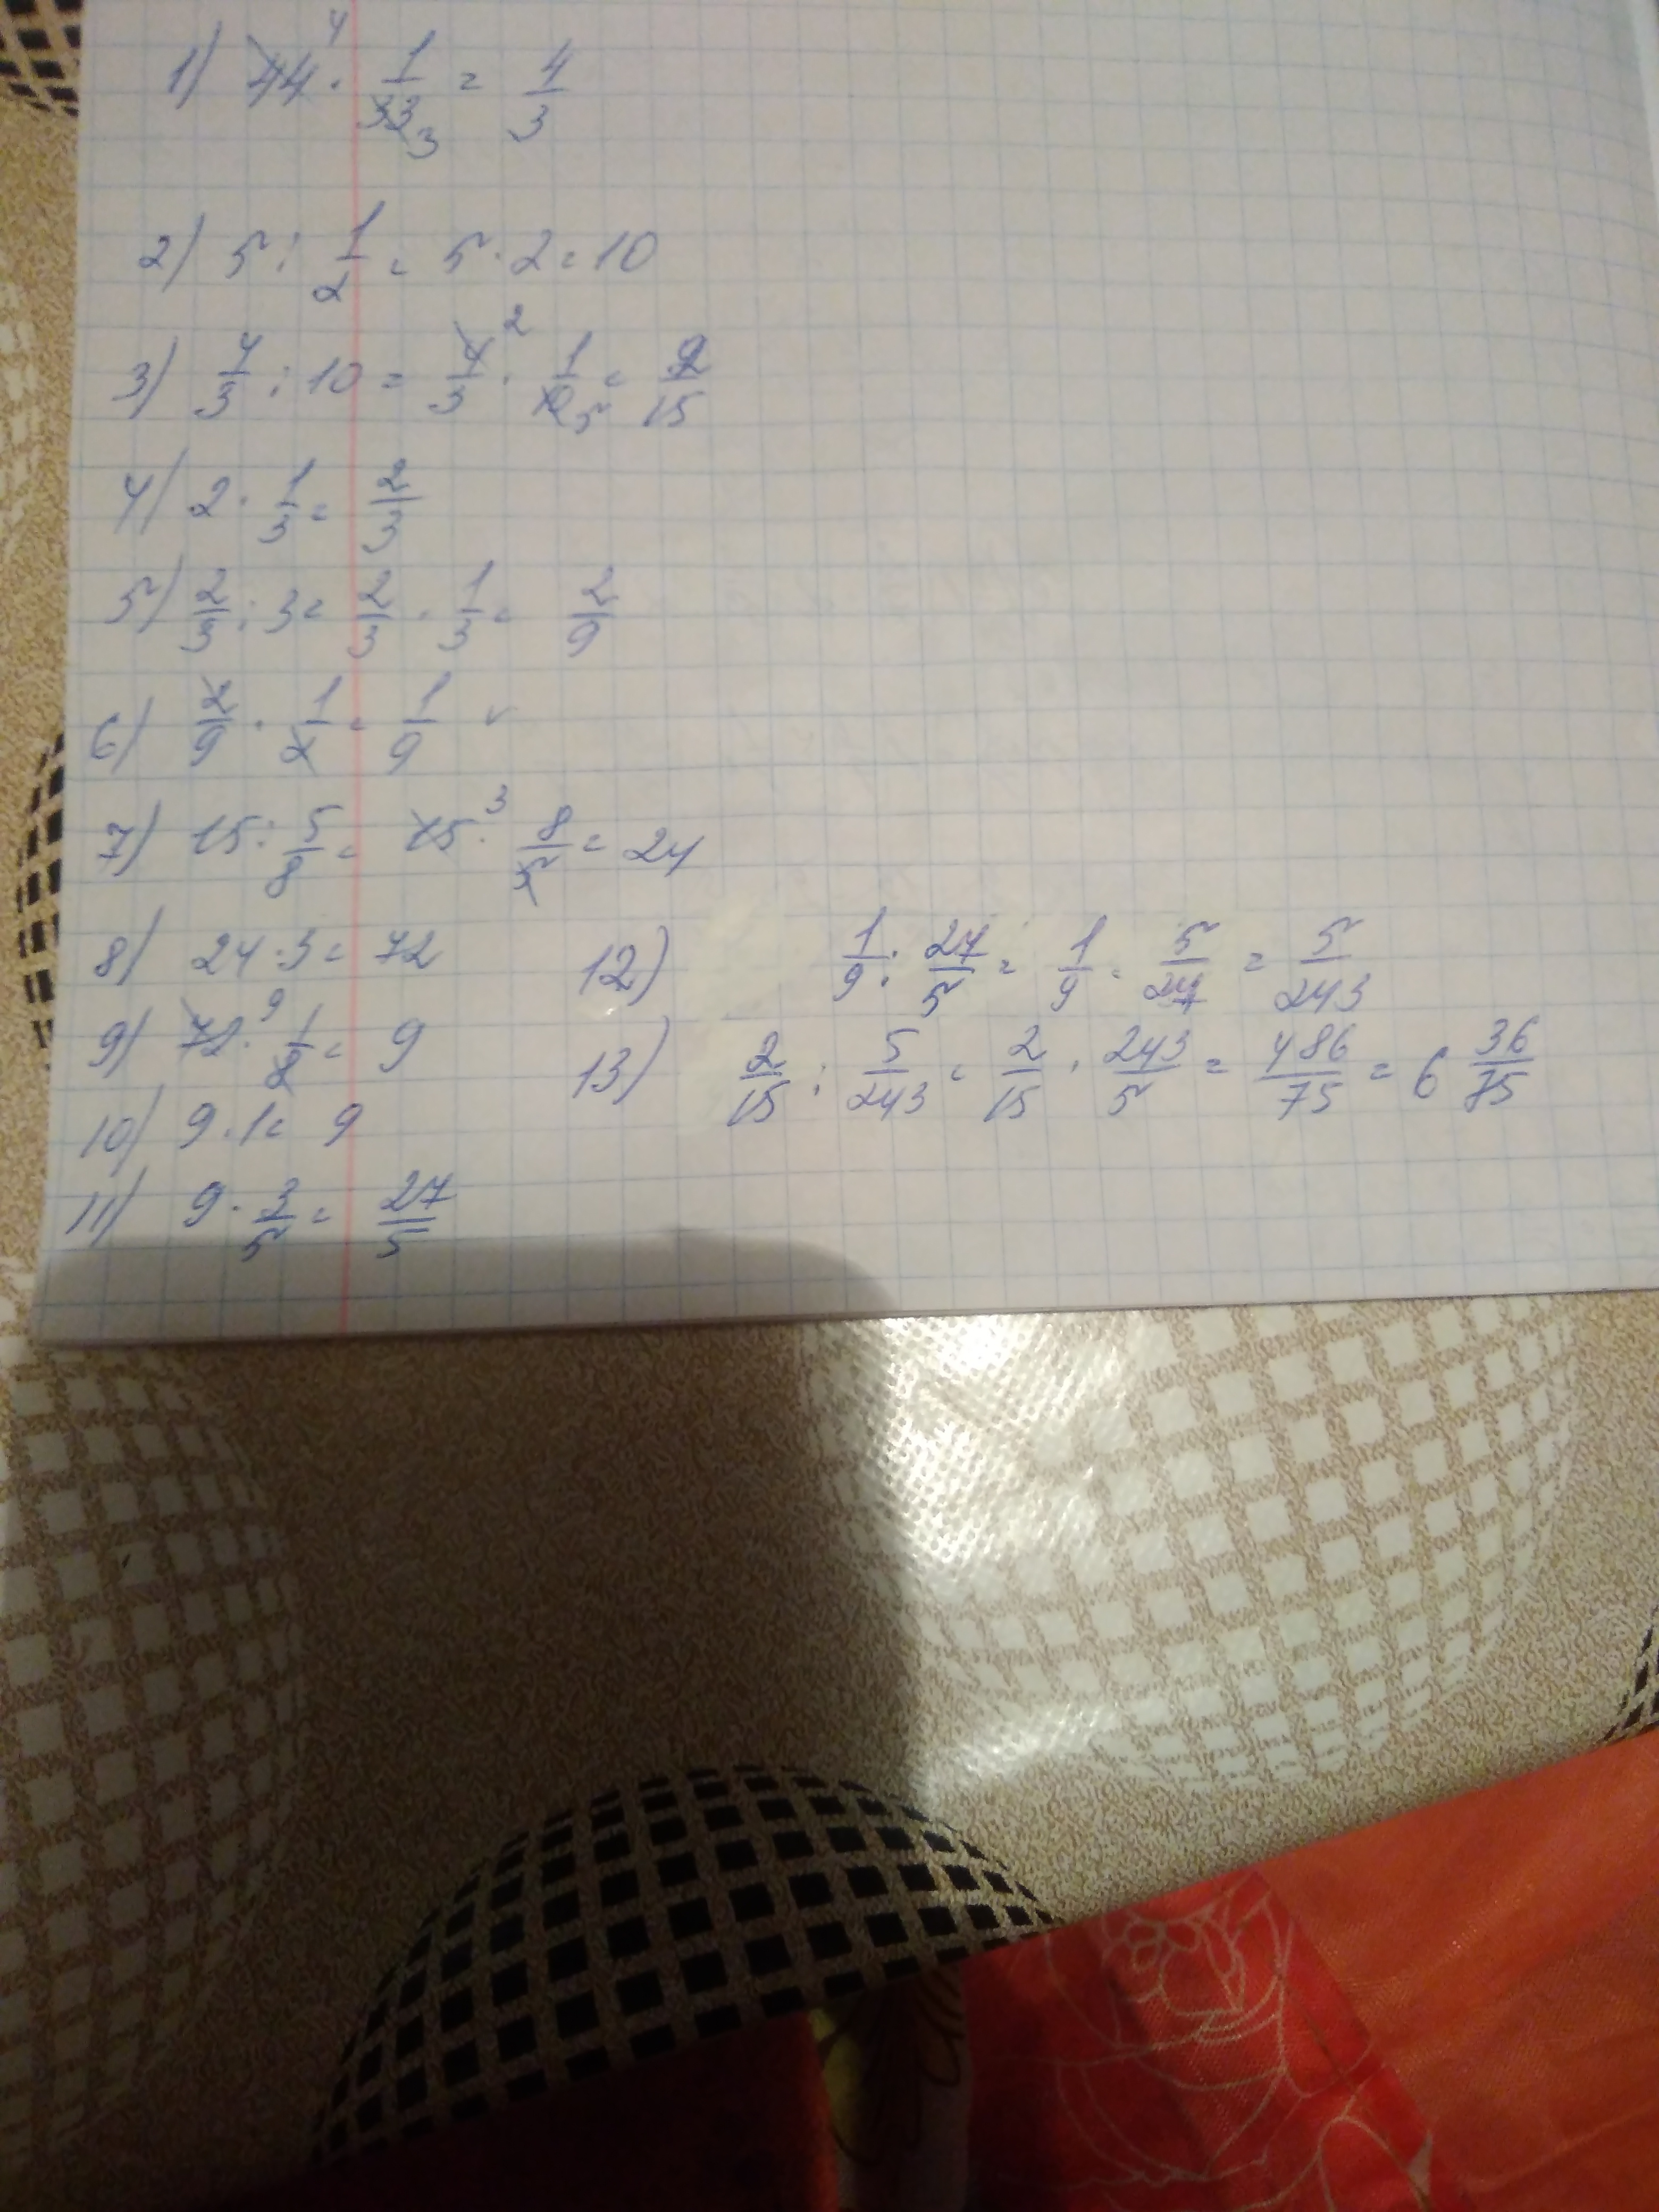 1) 44 4 · 1/33 3 = 4/3
2) 5 : 1/2 = 5 · 2 = 10
3) 4/3 : 10 = 4/3 2 · 1/10 5 = 2/15
4) 2 · 1/3 = 2/3
5) 2/3 : 3 = 2/3 · 1/3 = 2/9
6) 2/9 · 1/2 = 1/9
7) 15 : 5/8 = 15 3 · 8/5 = 24
8) 24 · 3 = 72
9) 72 9 · 1/8 = 9
10) 9 · 1 = 9
11) 9 · 3/5 = 27/5
12) 1/9 : 27/5 = 1/9 · 5/27 = 5/243
13) 2/15 : 5/243 = 2/15 · 243/5 = 486/75 = 6 36/75